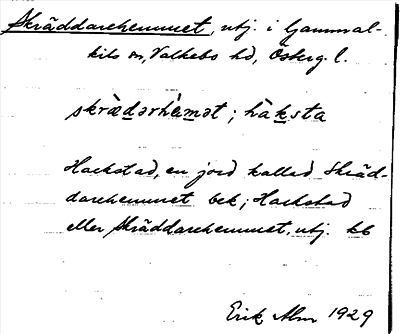 Skräddarehemmet, utj. i Gammal-
kils sn, Valkebo hd, Österg. l.
skrædərhemət ; håksta
Hackstad, en jord kallad Skräd-
darehemmet bek; Hackstad
eller Skräddarehemmet, utj. kb
Erik Alm 1929